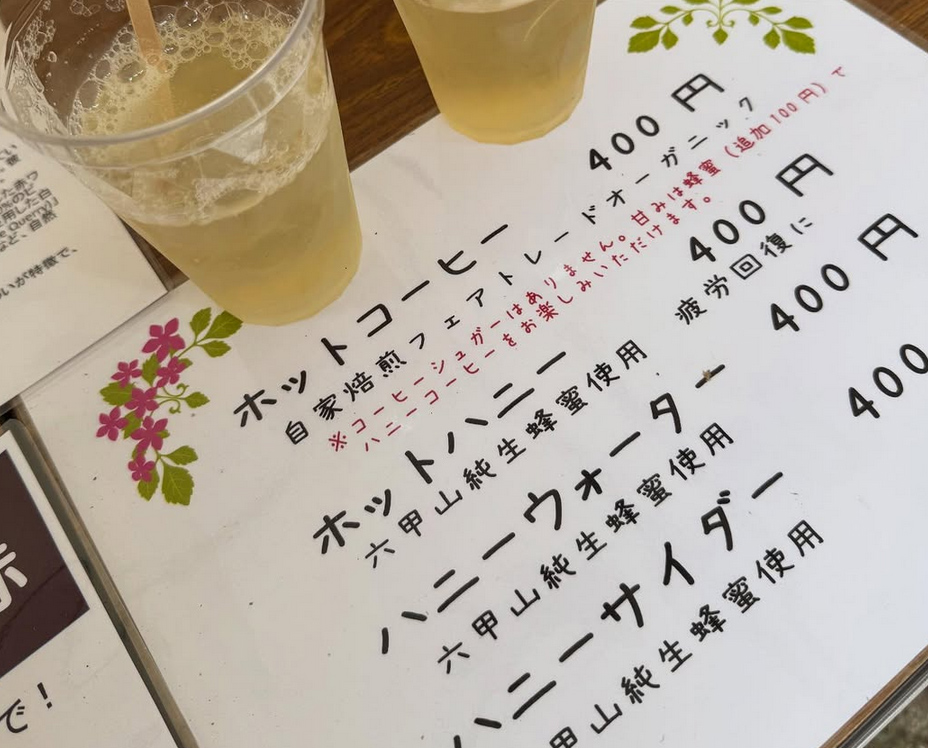 ホットコーヒー 400円
自家焙煎フェアトレードオーガニック
※コーヒーシュガーはありません。甘みは蜂蜜（追加100円）で
ハニーコーヒーをお楽しみいただけます。
ホットハニー 400円
六甲山純生蜂蜜使用 疲労回復に
ハニーウォーター 400円
六甲山純生蜂蜜使用
ハニーサイダー 400
甲山純生蜂蜜使用
で！